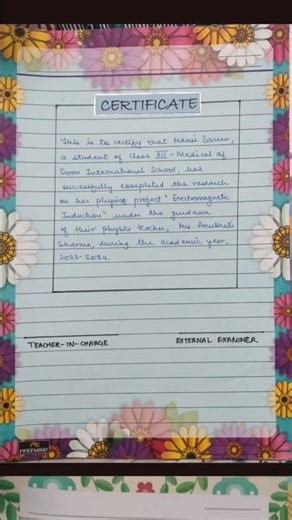 CERTIFICATE
This is to certify that Mansi Sareen,
a student of Class XII - Medical of
Doon International School, has
successfully completed the research
on her physics project "Electromagnetic
Induction" under the guidance
of their physics teacher, Ms Anubhuti
Sharma, during the academic year,
2023-2024.
TEACHER-IN-CHARGE
EXTERNAL EXAMINER
FREEMIND